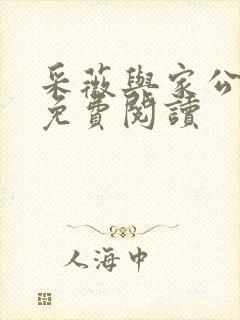 采薇與家公
免費閱讀
人海中